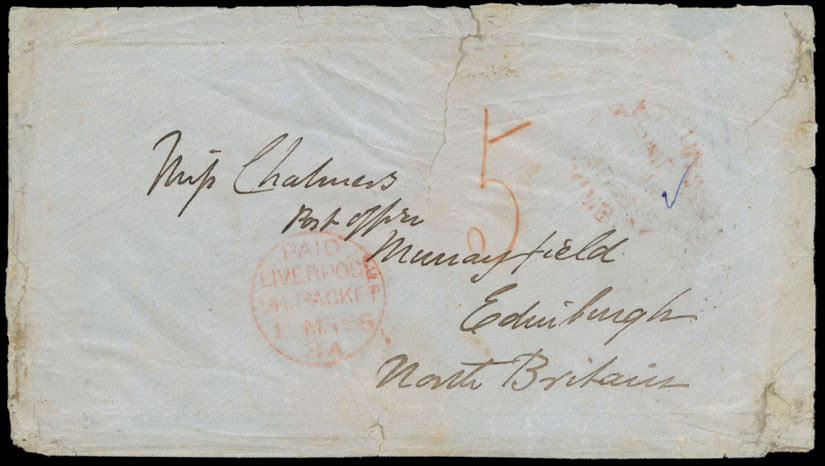 5
Miss Chalmers
Post office
Murrayfield
Edinburgh
North Britain
PAID
LIVERPOOL
PACKET
1 MR